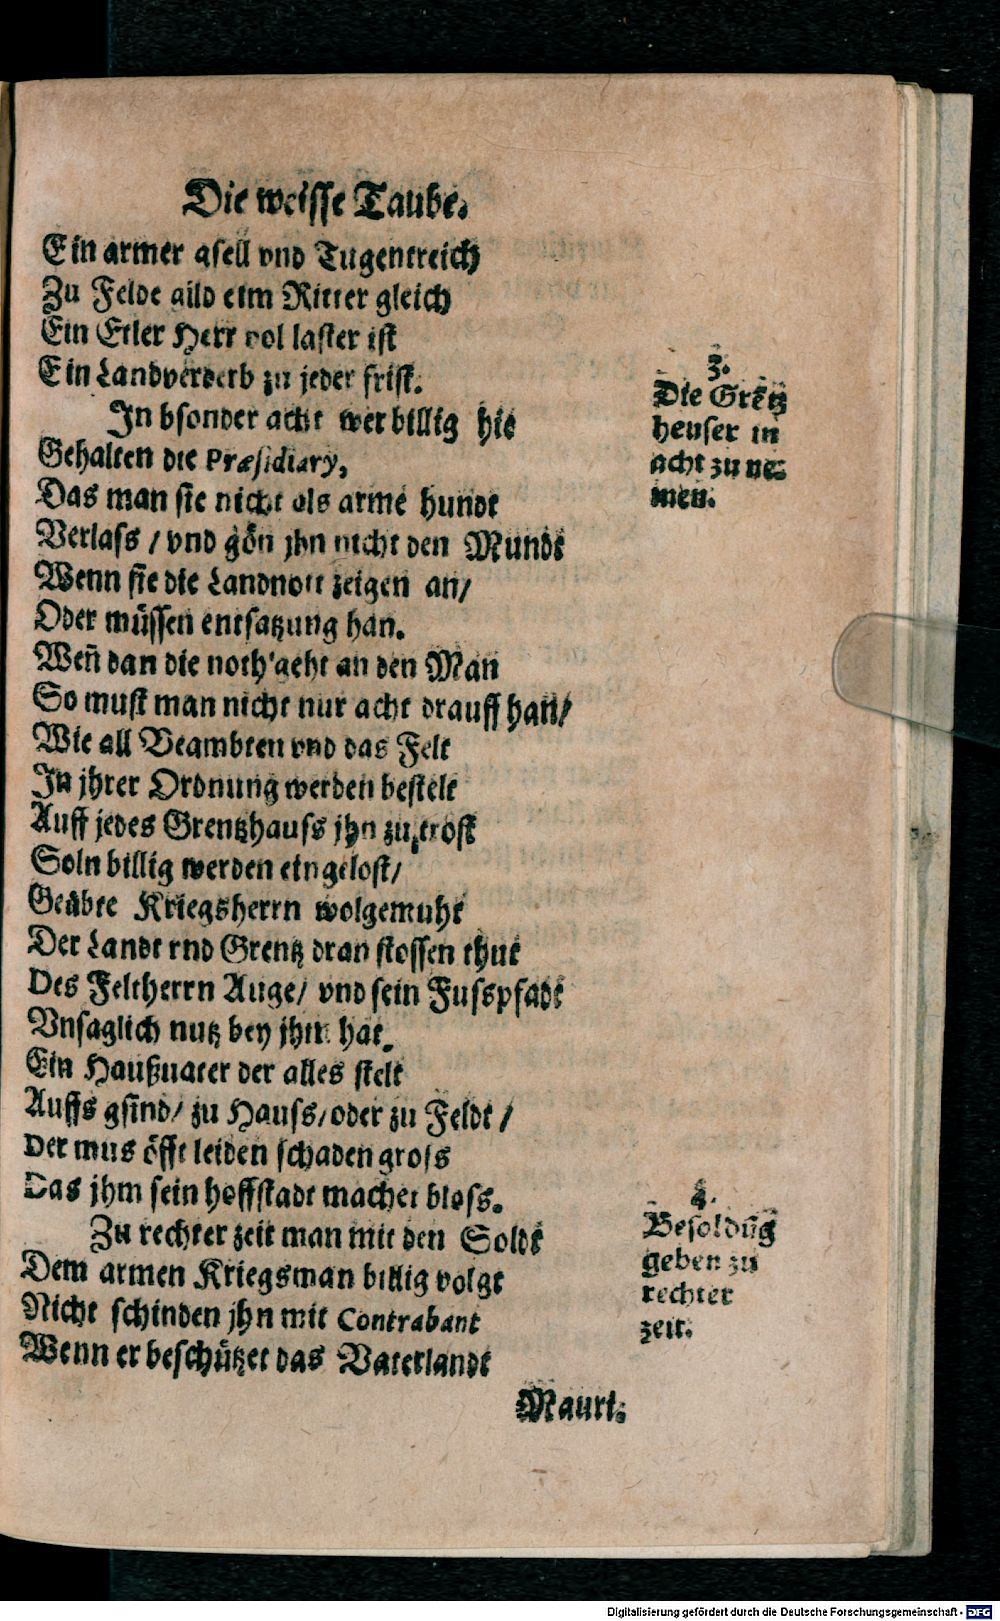 Die weisse Taube.
Ein armer gsell vnd Tugentreich
Zu Felde gild eim Ritter gleich
Ein Etler Herr vol laster ist
Ein Landverderb zu jeder frist.
3.
Die Grẽtz
heuser in
acht zu ne-
men.
In bsonder acht wer billig hie
Gehalten die Præsidiary,
Das man sie nicht als arme hundt
Verlass / vnd gön jhn nicht den Mundt
Wenn sie die Landnott zeigen an/
Oder müssen entsatzung han.
Weñ dan die noth geht an den Man
So must man nicht nur acht drauff han/
Wie all Beambten vnd das Felt
In jhrer Ordnung werden bestelt
Auff jedes Grentzhauss jhn zu trost
Soln billig werden eingelost/
Geübte Kriegsherrn wolgemuht
Der Landt vnd Grentz dran stossen thut
Des Feltherrn Auge/ vnd sein Fusspfadt
Vnsaglich nutz bey jhm hat.
Ein Haußuater der alles stelt
Auffs gsind/ zu Hauss/ oder zu Feldt /
Der mus öfft leiden schaden gross
Das jhm sein hoffstadt machet bloss.
4.
Besoldũg
geben zu
rechter
zeit.
Zu rechter zeit man mit den Soldt
Dem armen Kriegsman billig volgt
Nicht schinden jhn mit Contrabant
Wenn er beschützet das Vaterlandt
Mauri-
Digitalisierung gefördert durch die Deutsche Forschungsgemeinschaft - DFG